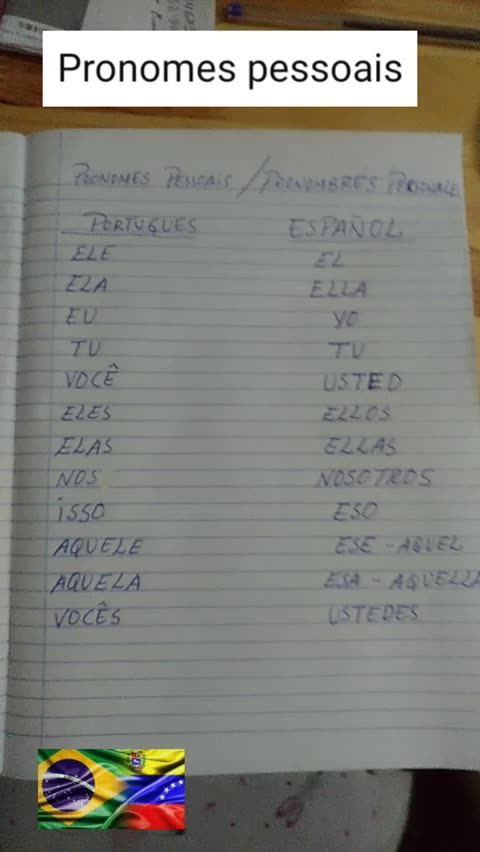 Pronomes pessoais
PRONOMES PESSOAIS / PRONOMBRES PERSONALE
PORTUGUES ESPAÑOL
ELE EL
ELA ELLA
EU YO
TU TU
VOCÊ USTED
ELES ELLOS
ELAS ELLAS
NOS NOSOTROS
ISSO ESO
AQUELE ESE - AQUEL
AQUELA ESA - AQUELLA
VOCÊS USTEDES